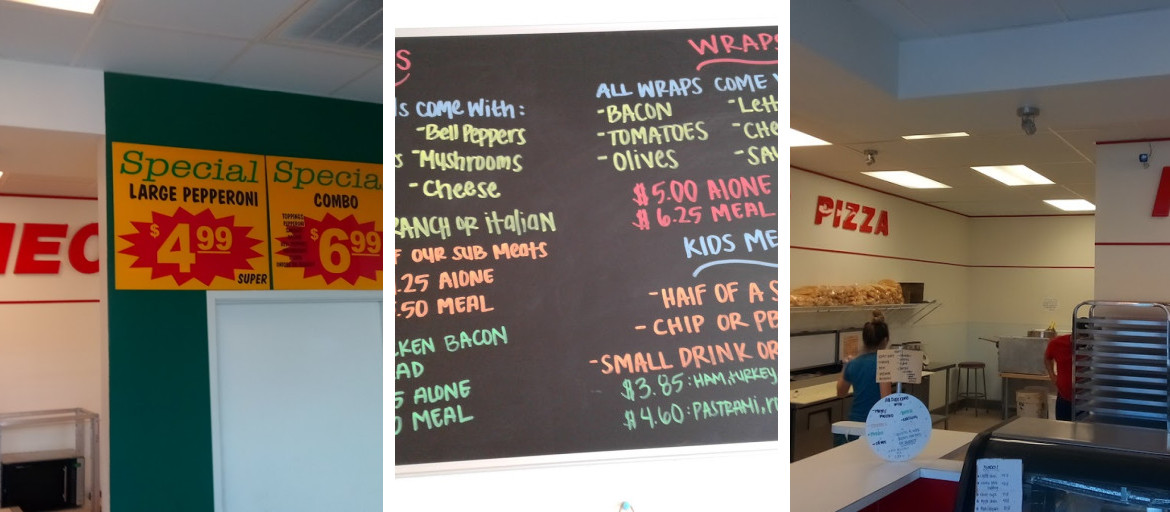 Special
LARGE PEPPERONI
$4.99
SUPER
Specia
COMBO
TOPPINGS
$6.99
S
ls come with:
-Bell Peppers
s -Mushrooms
-Cheese
RANCH OR italian
F OUR SUB Meats
.25 AlONE
.50 MEAL
KEN BACON
AD
5 ALONE
0 MEAL
WRAPS
ALL WRAPS COME
-BACON
-TOMATOES
-Olives
-Lett
-CHE
-SAU
$5.00 AlONE
$6.25 MEAL
KIDS ME
-HAlF OF A S
-CHIP OR PB
-SMALL DRINK OR
$3.85: HAM, tURKEY
$4.60: PASTRAMI, r
PIZZA